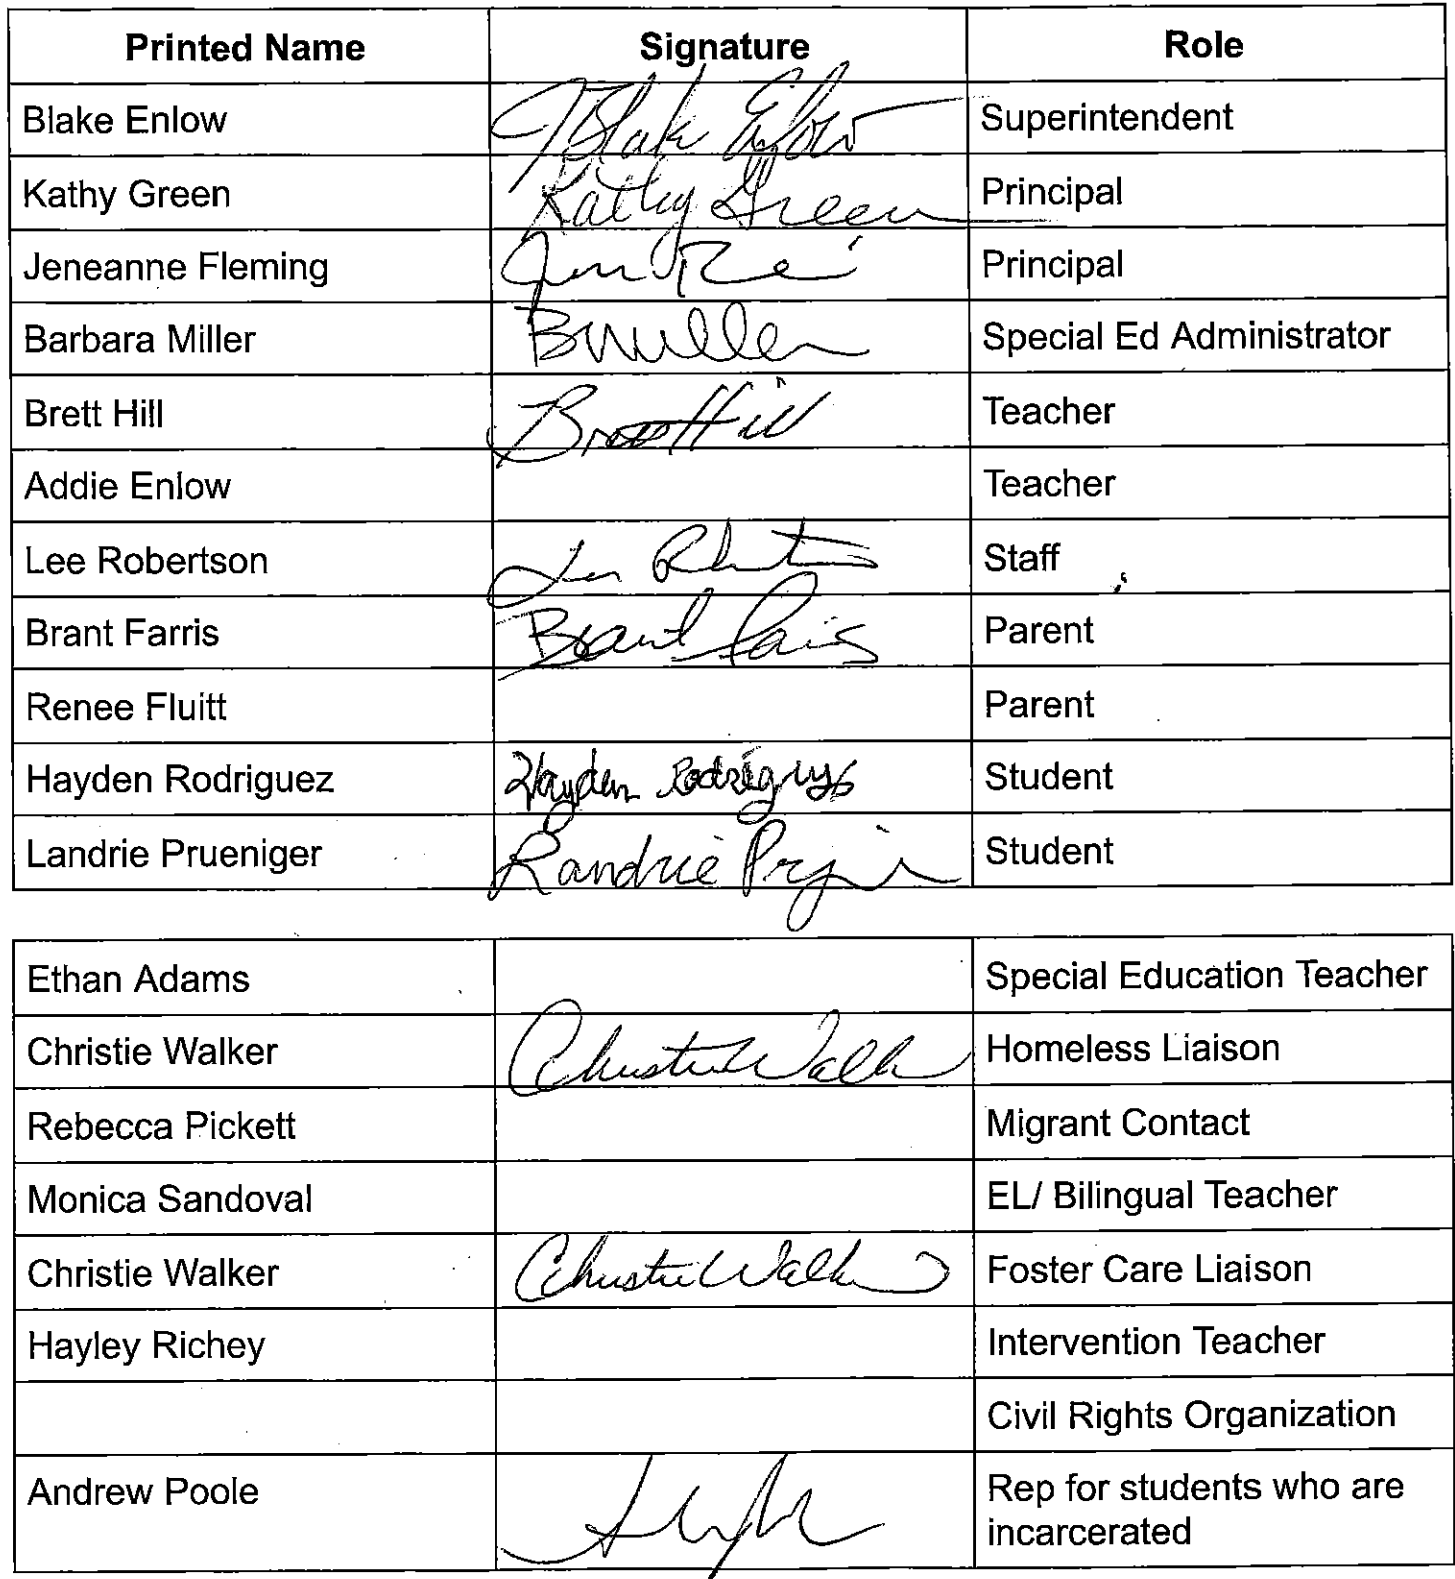 Printed Name Signature Role
Blake Enlow Blake Enlow Superintendent
Kathy Green Kathy Green Principal
Jeneanne Fleming Principal
Barbara Miller BMiller Special Ed Administrator
Brett Hill Brett Hill Teacher
Addie Enlow Teacher
Lee Robertson Lee Staff
Brant Farris Brant Farris Parent
Renee Fluitt Parent
Hayden Rodriguez Hayden Rodriguez Student
Landrie Prueniger Landrie Student
Ethan Adams Special Education Teacher
Christie Walker Christie Walker Homeless Liaison
Rebecca Pickett Migrant Contact
Monica Sandoval EL/ Bilingual Teacher
Christie Walker Christie Walker Foster Care Liaison
Hayley Richey Intervention Teacher
Civil Rights Organization
Andrew Poole Rep for students who are
incarcerated